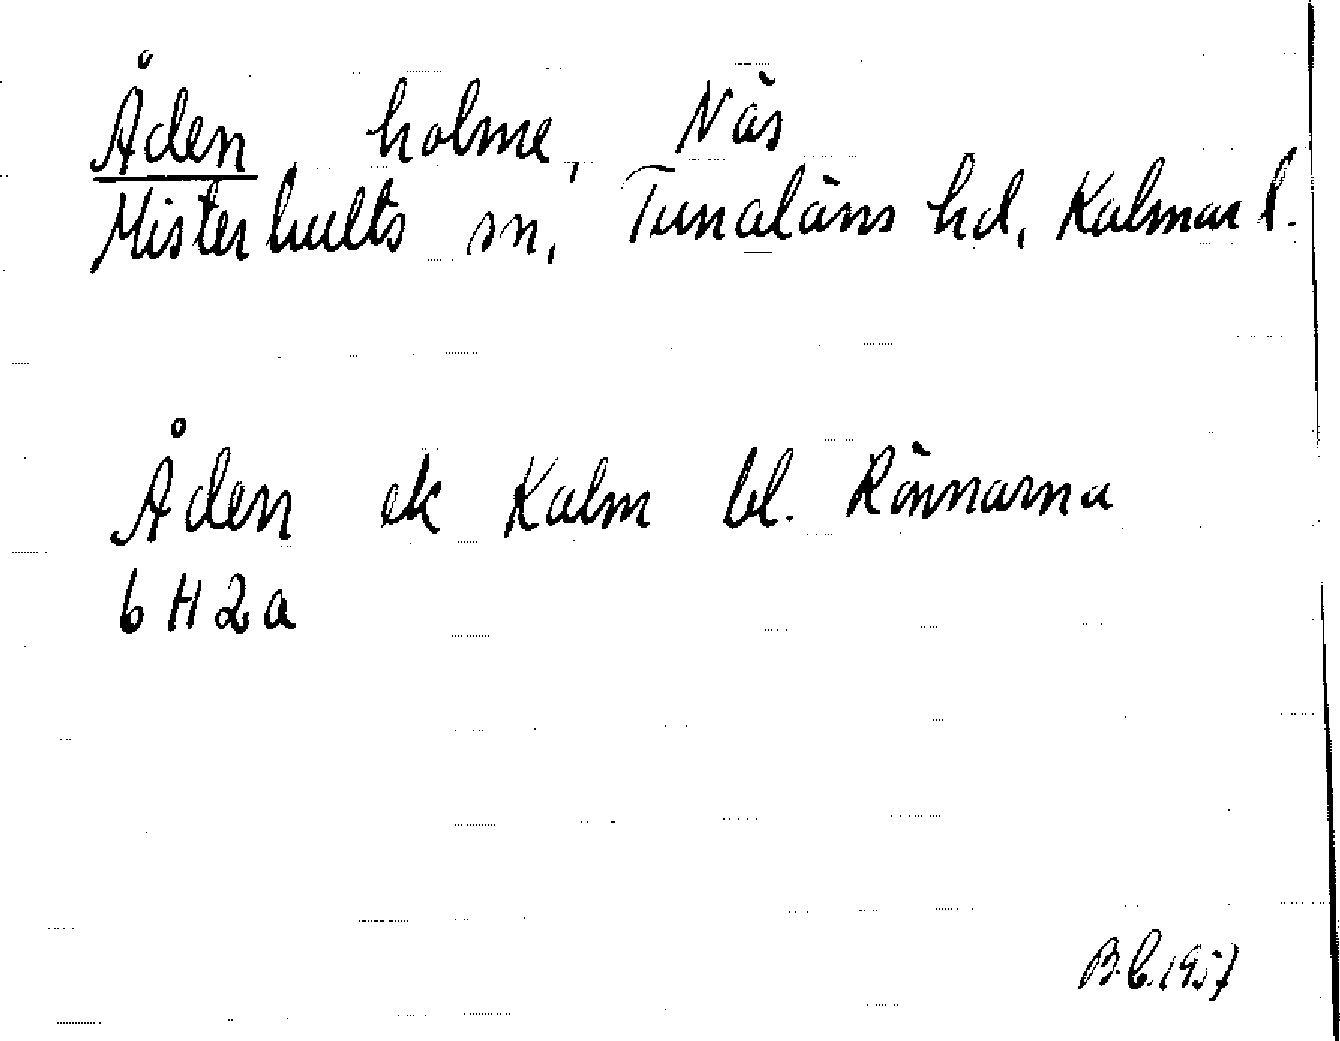 Åden holme, Näs
Misterhults sn, Tunaläns hd, Kalmar l.
Åden ek Kalm bl. Rönnarna
6H2a
B.C. 1957